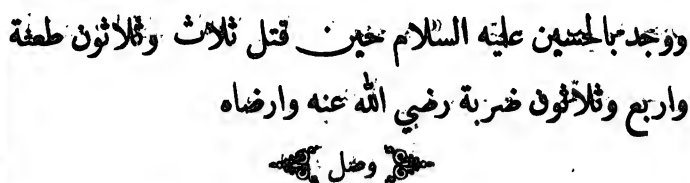 ووجد بالحسين عليه السلام حين قتل ثلاث وثلاثون طعنة
واربع وثلاثون ضربة رضي الله عنه وارضاه
وصل